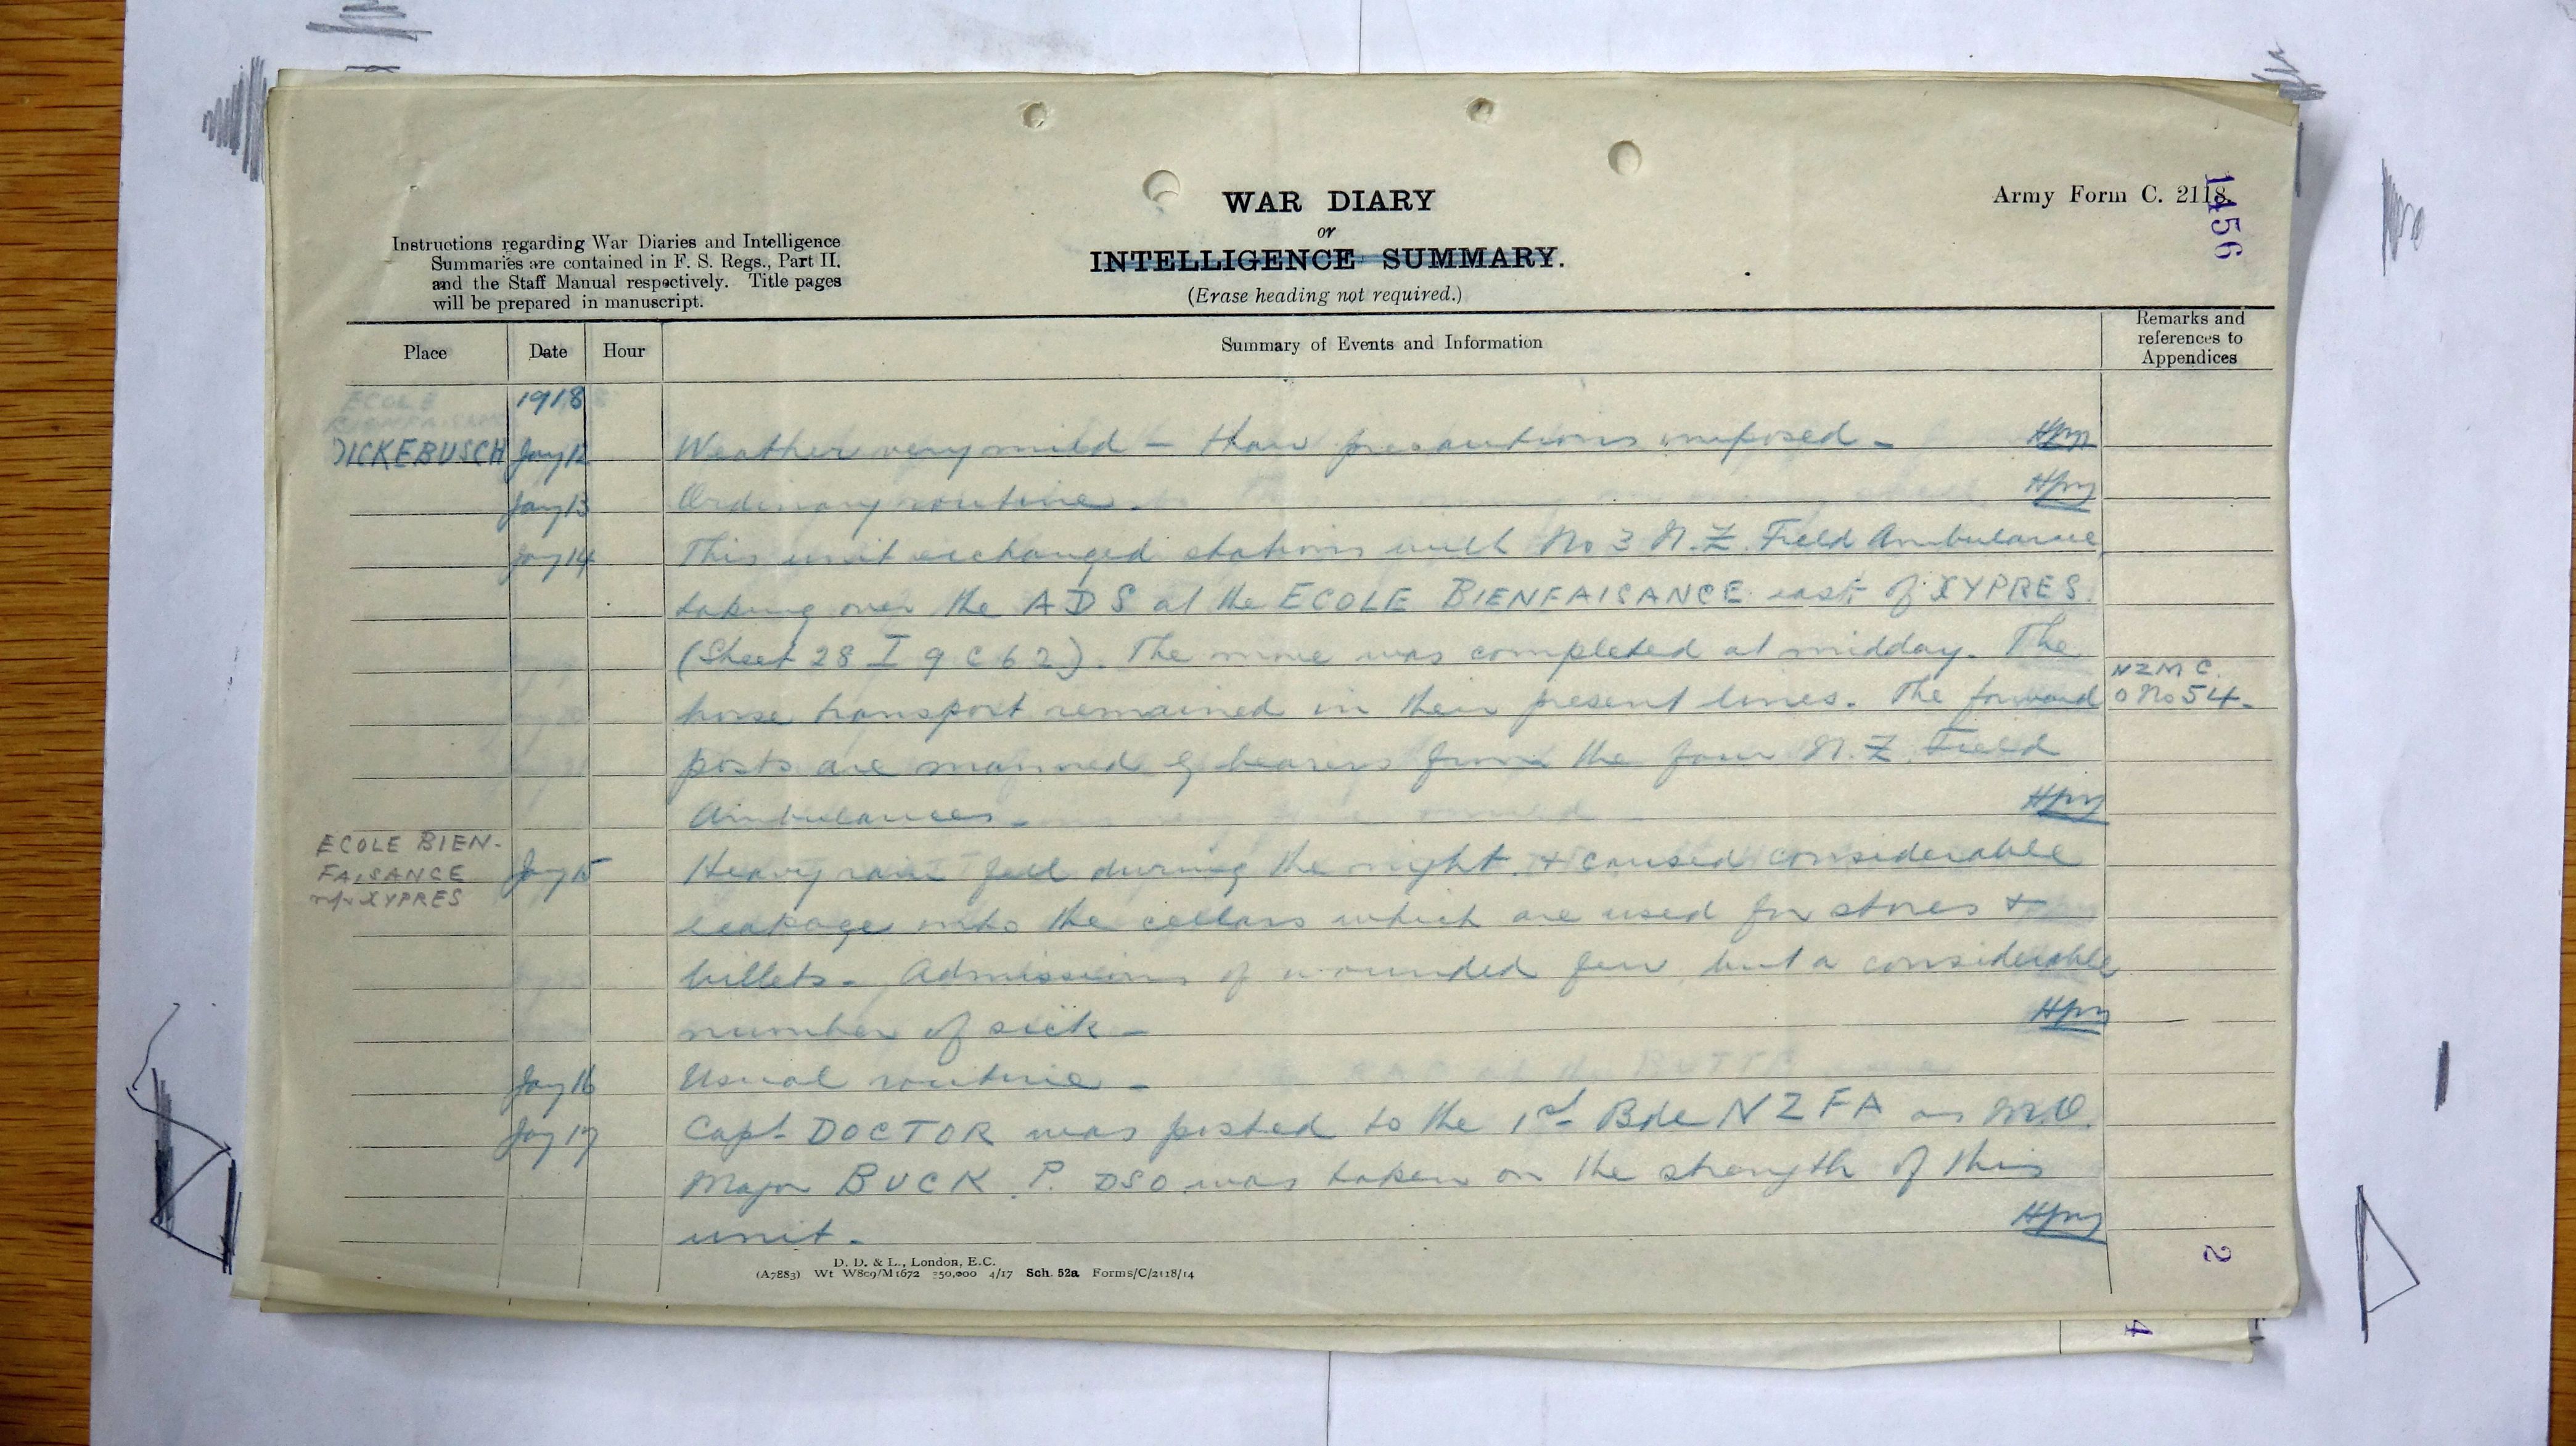 WAR DIARY
Army Form C. 2118.
1456
or
Instructions regarding War Diaries and Intelligence
Summaries are contained in F. S. Regs., Part II.
and the Staff Manual respectively. Title pages
will be prepared in manuscript.
INTELLIGENCE SUMMARY.
(Erase heading not required.)
Place Date Hour Summary of Events and Information Remarks and references to Appendices
ECOLE
1918
DICKEBUSCH Jany 12 Weather very mild - thaw precautions imposed -
Jany 13 Ordinary routine.
Jany 14 This unit exchanged stations with No 3 N.Z. Field Ambulance,
taking over the ADS at the ECOLE BIENFAISANCE east of XYPRES.
(Sheet 28 I 9 c 6 2). The move was completed at midday. The
horse transport remained in their present lines. The forward
NZMC
O No 54.
posts are manned by bearers from the four N.Z. Field
Ambulances.
ECOLE BIEN-
FAISANCE
XYPRES
Jany 15 Heavy rain fell during the night & caused considerable
leakage into the cellars which are used for stores &
billets. Admissions of wounded few but a considerable
number of sick -
Jany 16 Usual routine -
Jany 17 Capt DOCTOR was posted to the 1st Bde NZFA as M.O.
Major BUCK P. DSO was taken on the strength of this
unit.
2
D. D. & L., London, E.C.
(A7883) Wt W809/M1672 350,000 4/17 Sch. 52a Forms/C/2118/14
4